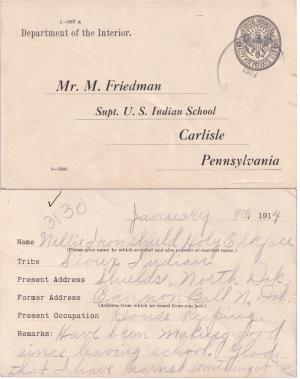 1—567 a
Department of the Interior.
1914
Mr. M. Friedman
Supt. U. S. Indian School
Carlisle
Pennsylvania
6—2285
3130
January 9th, 1914
Name Nellie Ironshield Holy Elkface
(Please give name by which enrolled and also present or married name.)
Tribe Sioux Indian
Present Address Shields, North Dak.
Former Address Cannon Ball N. Dak.
(Address from which we heard from you last.)
Present Occupation House Kiping.
Remarks: Have been making good
since leaving school. Glad
that I have learne something at